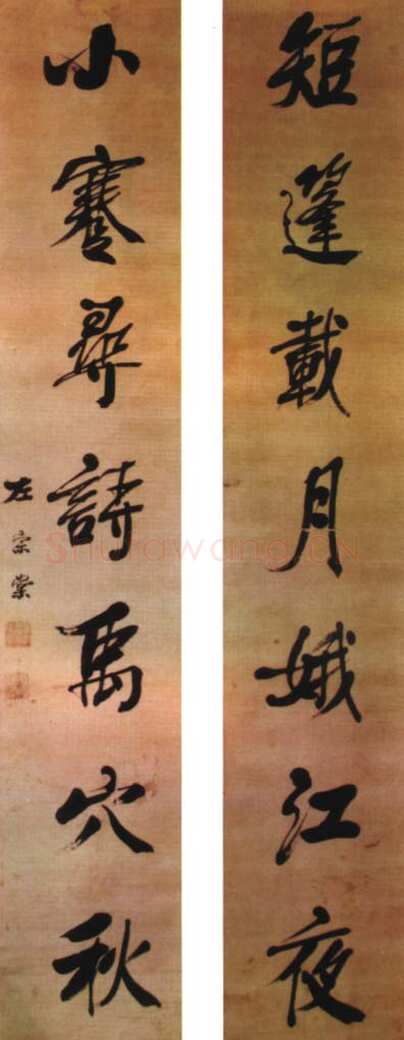 短篷載月娥江夜
小蹇尋詩禹穴秋
左宗棠